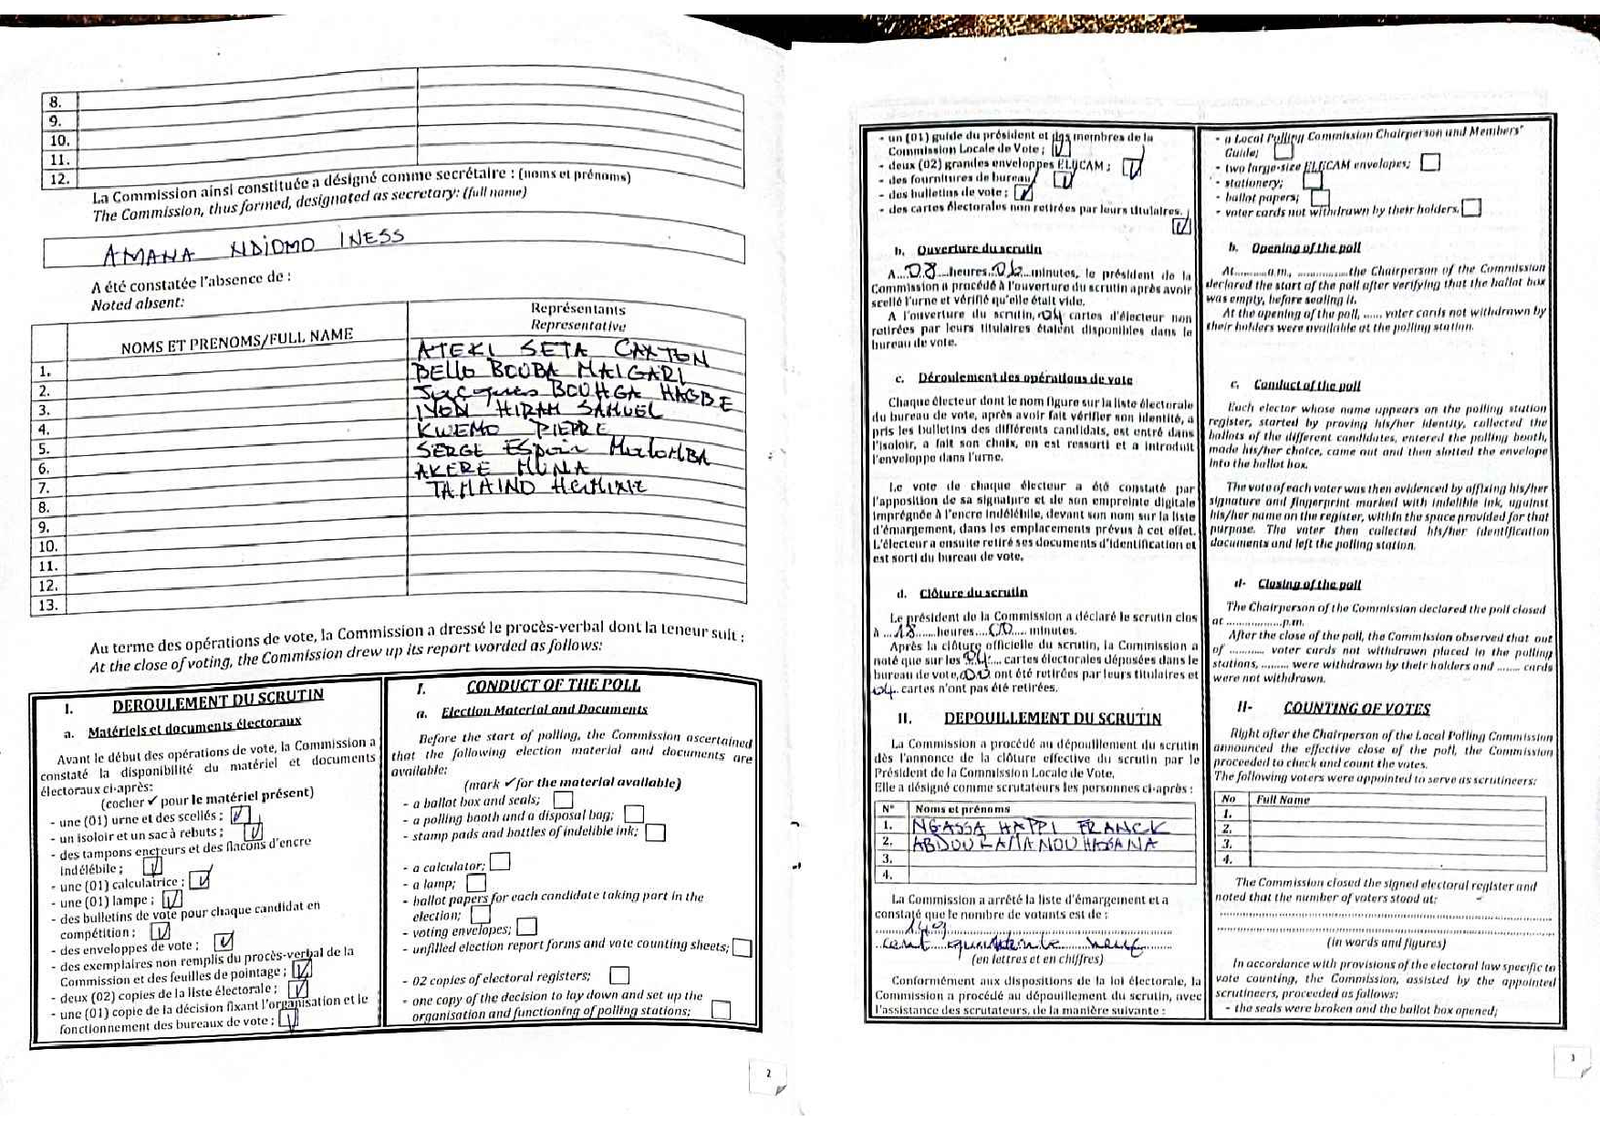 8.
9.
10.
11.
12.
La Commission ainsi constituée a désigné comme secrétaire : (noms et prénoms)
The Commission, thus formed, designated as secretary: (full name)
AMANA NDIOMO INESS
A été constatée l'absence de :
Noted absent:
NOMS ET PRENOMS/FULL NAME
Représentants
Representative
ATEKI SETA CAXTON
1. BELLO BOUBA MAIGARI
2. Jacques BOUHGA HAGBE
3. IYON HIRAM SAMUEL
4. KWEMO PIERRE
5. SERGE ESpoir MATOMBA
6. AKERE MUNA
7. TAMAINO HERMINE
8.
9.
10.
11.
12.
13.
Au terme des opérations de vote, la Commission a dressé le procès-verbal dont la teneur suit :
At the close of voting, the Commission drew up its report worded as follows:
I. DEROULEMENT DU SCRUTIN
a. Matériels et documents électoraux
Avant le début des opérations de vote, la Commission a
constaté la disponibilité du matériel et documents
électoraux ci-après:
(cocher ✓ pour le matériel présent)
- une (01) urne et des scellés ;
- un isoloir et un sac à rebuts ;
- des tampons encreurs et des flacons d'encre
indélébile ;
- une (01) calculatrice ;
- une (01) lampe ;
- des bulletins de vote pour chaque candidat en
compétition ;
- des enveloppes de vote ;
- des exemplaires non remplis du procès-verbal de la
Commission et des feuilles de pointage ;
- deux (02) copies de la liste électorale ;
- une (01) copie de la décision fixant l'organisation et le
fonctionnement des bureaux de vote ;
I. CONDUCT OF THE POLL
a. Election Material and Documents
Before the start of polling, the Commission ascertained
that the following election material and documents are
available:
(mark ✓ for the material available)
- a ballot box and seals;
- a polling booth and a disposal bag;
- stamp pads and bottles of indelible ink;
- a calculator;
- a lamp;
- ballot papers for each candidate taking part in the
election;
- voting envelopes;
- unfilled election report forms and vote counting sheets;
- 02 copies of electoral registers;
- one copy of the decision to lay down and set up the
organisation and functioning of polling stations;
2
- un (01) guide du président et des membres de la
Commission Locale de Vote ;
- deux (02) grandes enveloppes ELECAM ;
- des fournitures de bureau ;
- des bulletins de vote ;
- des cartes électorales non retirées par leurs titulaires.
b. Ouverture du scrutin
A....08....heures......minutes, le président de la
Commission a procédé à l'ouverture du scrutin après avoir
scellé l'urne et vérifié qu'elle était vide.
A l'ouverture du scrutin, 04 cartes d'électeur non
retirées par leurs titulaires étaient disponibles dans le
bureau de vote.
c. Déroulement des opérations de vote
Chaque électeur dont le nom figure sur la liste électorale
du bureau de vote, après avoir fait vérifier son identité, a
pris les bulletins des différents candidats, est entré dans
l'isoloir, a fait son choix, en est ressorti et a introduit
l'enveloppe dans l'urne.
Le vote de chaque électeur a été constaté par
l'apposition de sa signature et de son empreinte digitale
imprégnée à l'encre indélébile, devant son nom sur la liste
d'émargement, dans les emplacements prévus à cet effet.
L'électeur a ensuite retiré ses documents d'identification et
est sorti du bureau de vote.
d. Clôture du scrutin
Le président de la Commission a déclaré le scrutin clos
à ...18...... heures....00.... minutes.
Après la clôture officielle du scrutin, la Commission a
noté que sur les 04 cartes électorales déposées dans le
bureau de vote, 00 ont été retirées par leurs titulaires et
04 cartes n'ont pas été retirées.
II. DEPOUILLEMENT DU SCRUTIN
La Commission a procédé au dépouillement du scrutin
dès l'annonce de la clôture effective du scrutin par le
Président de la Commission Locale de Vote.
Elle a désigné comme scrutateurs les personnes ci-après :
N° Noms et prénoms
1. NGASSA HAPPI FRANCK
2. ABDOURAMANOU HASSANA
3.
4.
La Commission a arrêté la liste d'émargement et a
constaté que le nombre de votants est de :
149
cent quarante neuf
(en lettres et en chiffres)
Conformément aux dispositions de la loi électorale, la
Commission a procédé au dépouillement du scrutin, avec
l'assistance des scrutateurs, de la manière suivante :
- a Local Polling Commission Chairperson and Members'
Guide;
- two large-size ELECAM envelopes;
- stationery;
- ballot papers;
- voter cards not withdrawn by their holders.
b. Opening of the poll
At..........a.m, ...............the Chairperson of the Commission
declared the start of the poll after verifying that the ballot box
was empty, before sealing it.
At the opening of the poll, ...... voter cards not withdrawn by
their holders were available at the polling station.
c. Conduct of the poll
Each elector whose name appears on the polling station
register, started by proving his/her identity, collected the
ballots of the different candidates, entered the polling booth,
made his/her choice, came out and then slotted the envelope
into the ballot box.
The vote of each voter was then evidenced by affixing his/her
signature and fingerprint marked with indelible ink, against
his/her name on the register, within the space provided for that
purpose. The voter then collected his/her identification
documents and left the polling station.
d- Closing of the poll
The Chairperson of the Commission declared the poll closed
at ....................p.m.
After the close of the poll, the Commission observed that out
of ............ voter cards not withdrawn placed in the polling
stations, ......... were withdrawn by their holders and ........ cards
were not withdrawn.
II- COUNTING OF VOTES
Right after the Chairperson of the Local Polling Commission
announced the effective close of the poll, the Commission
proceeded to check and count the votes.
The following voters were appointed to serve as scrutineers:
No Full Name
1.
2.
3.
4.
The Commission closed the signed electoral register and
noted that the number of voters stood at:
(in words and figures)
In accordance with provisions of the electoral law specific to
vote counting, the Commission, assisted by the appointed
scrutineers, proceeded as follows:
- the seals were broken and the ballot box opened;
3